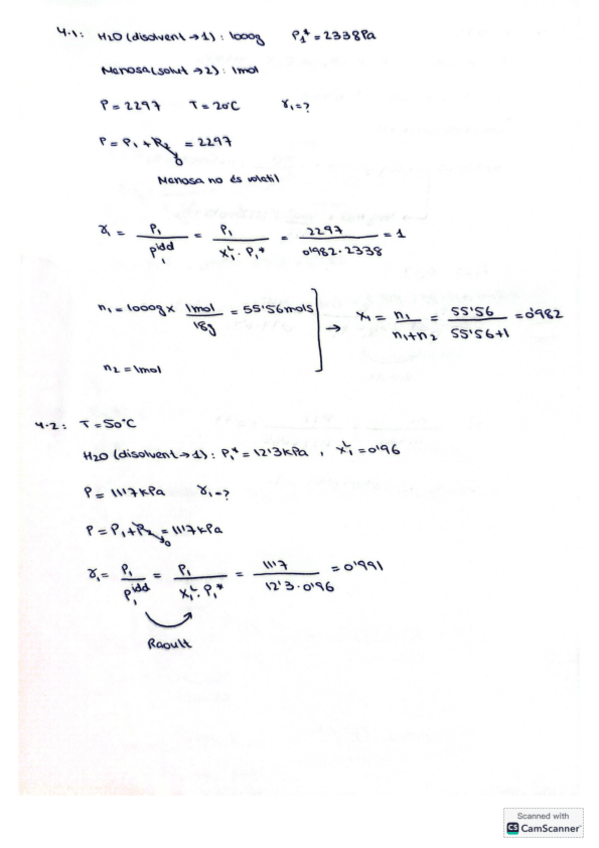 4.1: H2O (disolvent → 1): 1000g P1* = 2338 Pa
Manosa (solut → 2): 1mol
P = 2297 T = 20°C γ1 = ?
P = P1 + P2 = 2297
0
Manosa no és volatil
γ1 = P1 / P1^idd = P1 / (x1^L · P1*) = 2297 / (0'982 · 2338) = 1
n1 = 1000g x 1mol / 18g = 55'56 mols → x1 = n1 / (n1+n2) = 55'56 / (55'56+1) = 0'982
n2 = 1mol
4.2: T = 50°C
H2O (disolvent → 1): P1* = 12'3 kPa , x1^L = 0'96
P = 11'7 kPa γ1 = ?
P = P1 + P2 = 11'7 kPa
0
γ1 = P1 / P1^idd = P1 / (x1^L · P1*) = 11'7 / (12'3 · 0'96) = 0'991
Raoult
Scanned with
CS CamScanner